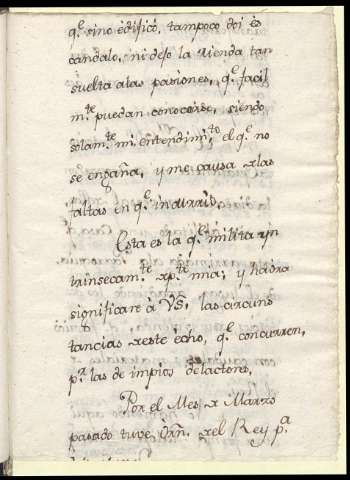 q.e sino edifico, tampoco doi es
candalo, ni dejo la rienda tan
suelta a las pasiones, q.e facil
m.te puedan conocerse, siendo
solam.te mi entendimi.to el q.e no
se engaña, y me causa xlas
faltas en q.e incurris.
Esta es la q.e milita yn
trinsecam.te xp.te mia; y haora
significare à VS, las circuns
tancias xeste echo, q.e concurren,
p.r las de impios delactores,
Por el Mes x Marzo
pasado tuve Orñ. xel Rey p.a